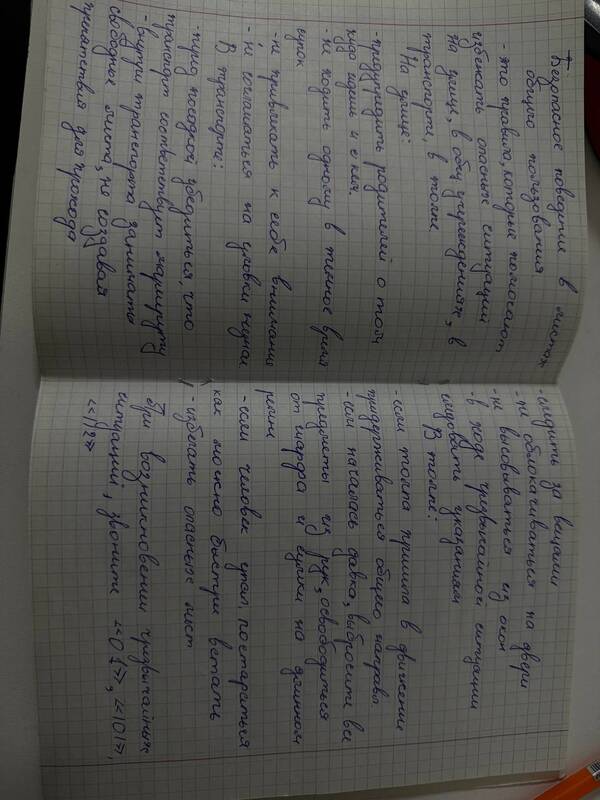 Безопасное поведение в местах
общего пользования
- это правила, которые помогают
избежать опасных ситуаций
на улице, в общ. учреждениях, в
транспорте, в толпе
На улице:
- предупредить родителей о том
куда идешь и с кем.
- не ходить одному в темное время
суток
- не привлекать к себе внимания
- не соглашаться на уловки незнак
В транспорте:
- перед поездкой убедиться, что
транспорт соответствует маршруту
- внутри транспорта занимать
свободные места, не создавая
препятствия для прохода
- следить за вещами
- не облокачиваться на двери
- не высовываться из окон
- в ходе чрезвычайной ситуации
следовать указаниям
В толпе:
- если толпа пришла в движение
придерживаться общего направл
- если началась давка, выбросить все
предметы из рук, освободиться
от шарфа и сумки на длинном
ремне
- если человек упал, постараться
как можно быстрее встать
- избегать опасных мест
При возникновении чрезвычайных
ситуаций, звоните <<01>>, <<101>>,
<<112>>